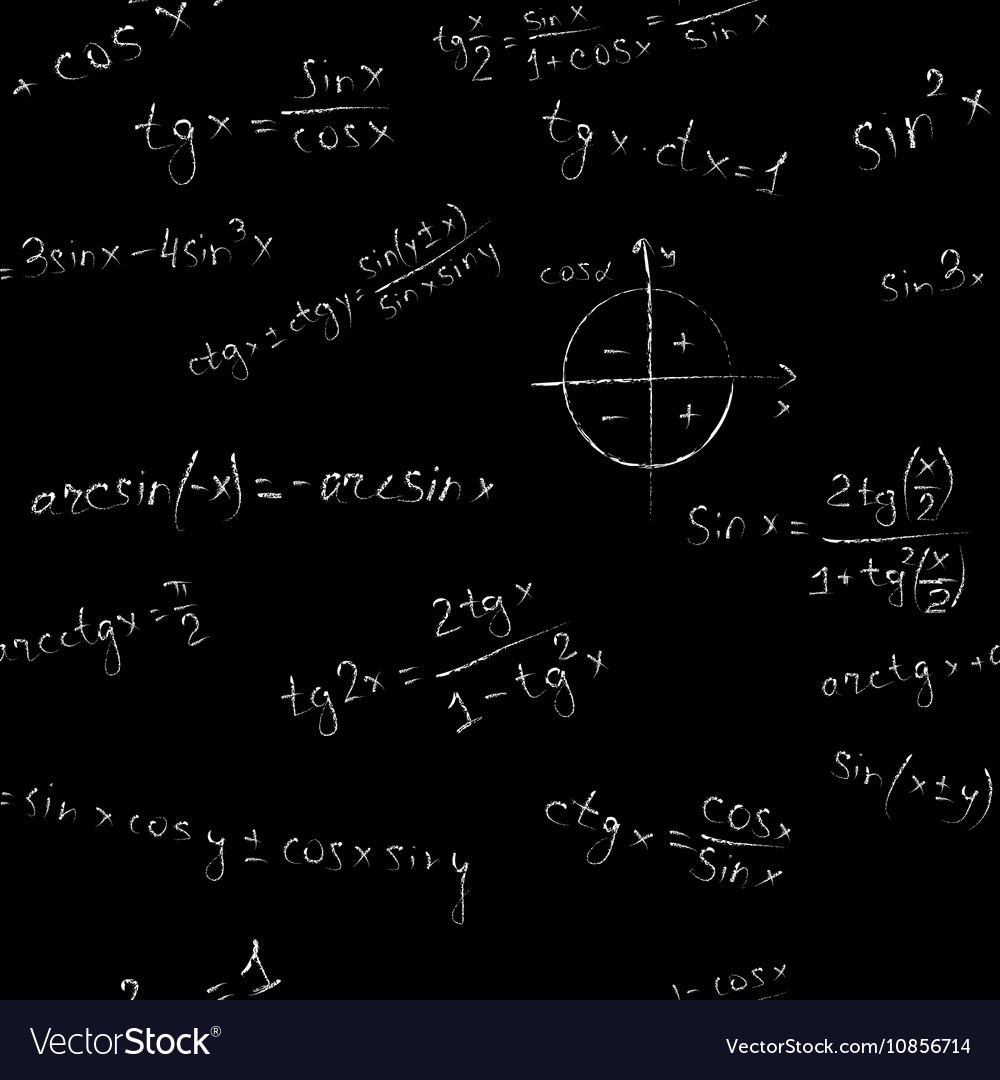 + cos x
tg x/2 = sin x/1+cosx = /sin x
tgx = sinx/cosx
tgx·ctx=1
sin²x
=3sinx-4sin³x
ctgx±ctgy=sin(y±x)/sinxsiny
cosα y
sin3x
- +
- +
x
arcsin(-x)=-arcsinx
Sin x = 2tg(x/2)/1+tg²(x/2)
arcctgx=π/2
tg2x = 2tgx/1-tg²x
arctgx+
Sin(x±y)
=sin x cosy±cosxsiny
ctgx=cosx/Sinx
2 =1
1-cosx
VectorStock®
VectorStock.com/10856714